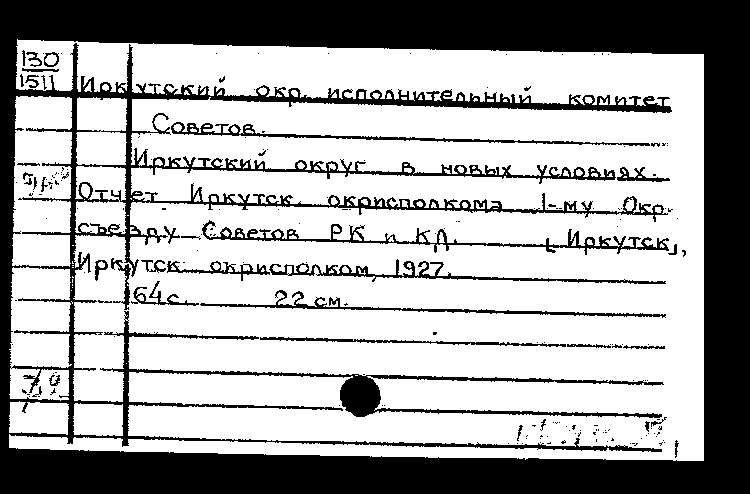 130
1511
Иркутский окр. исполнительный комитет
Советов.
Иркутский округ в новых условиях.
Отчет Иркутск. окрисполкома 1-му Окр.
съезду Советов РК и КД. [Иркутск],
Иркутск. окрисполком, 1927.
64 с. 22 см.